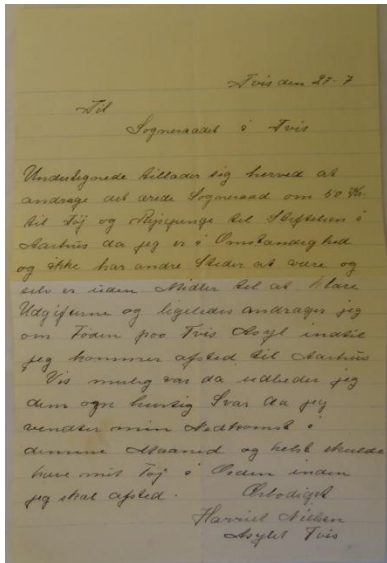 Tvis den 27-7
Til
Sogneraadet i Tvis
Undertegnede tillader sig herved at
andrage det ærede Sogneraad om 50 Kr.
til Tøj og Rejsepenge til Stiftelsen i
Aarhus da jeg er i Omstændighed
og ikke har andre Steder at være og
selv er uden Midler til at klare
Udgifterne og ligeledes andrages jeg
om Føden paa Tvis Asyl indtil
jeg kommer afsted til Aarhus
Vis mulig var da udbeder jeg
dem ogsaa hurtig Svar da jeg
venter min Nedkomst i
denne Maaned og helst skulde
have mit Tøj i Orden inden
jeg skal afsted.
Ærbødigst
Harriet Nielsen
Asylet Tvis